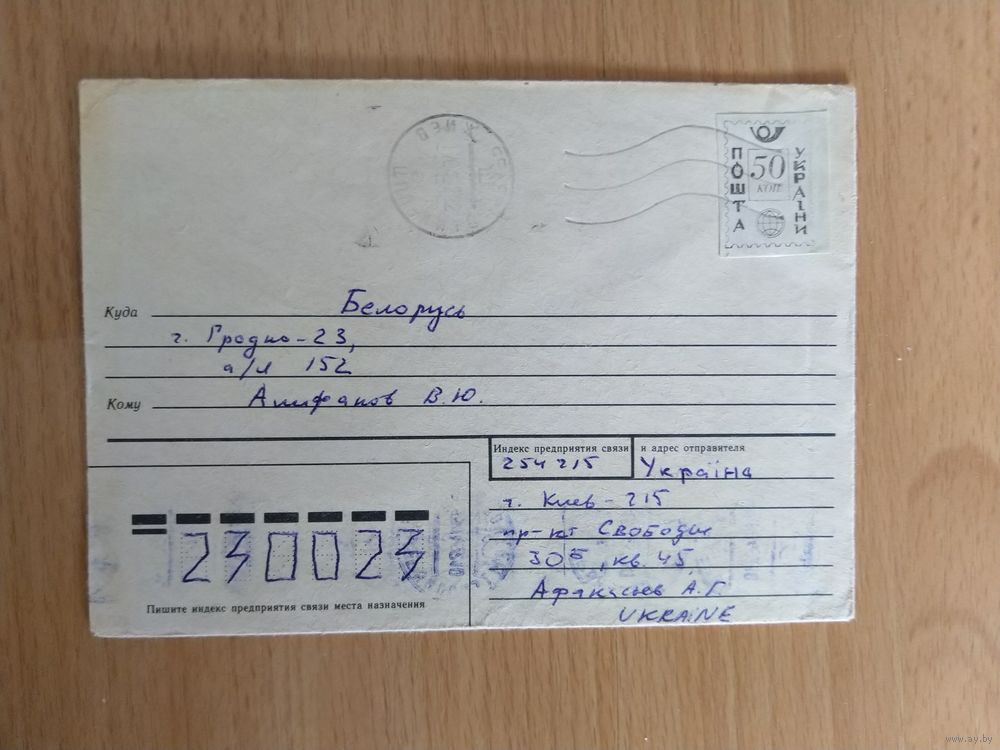 КИЕВ
ПОШТА
50
КОП
УКРАЇНИ
Куда Белорусь
г. Гродно-23,
а/я 152
Кому Алифанов В.Ю.
Индекс предприятия связи и адрес отправителя
254215 Україна
г. Киев-215
пр-кт Свободы
30б, кв. 45
Афанасьев А.Г.
UKRAINE
230023
Пишите индекс предприятия связи места назначения
www.ay.by